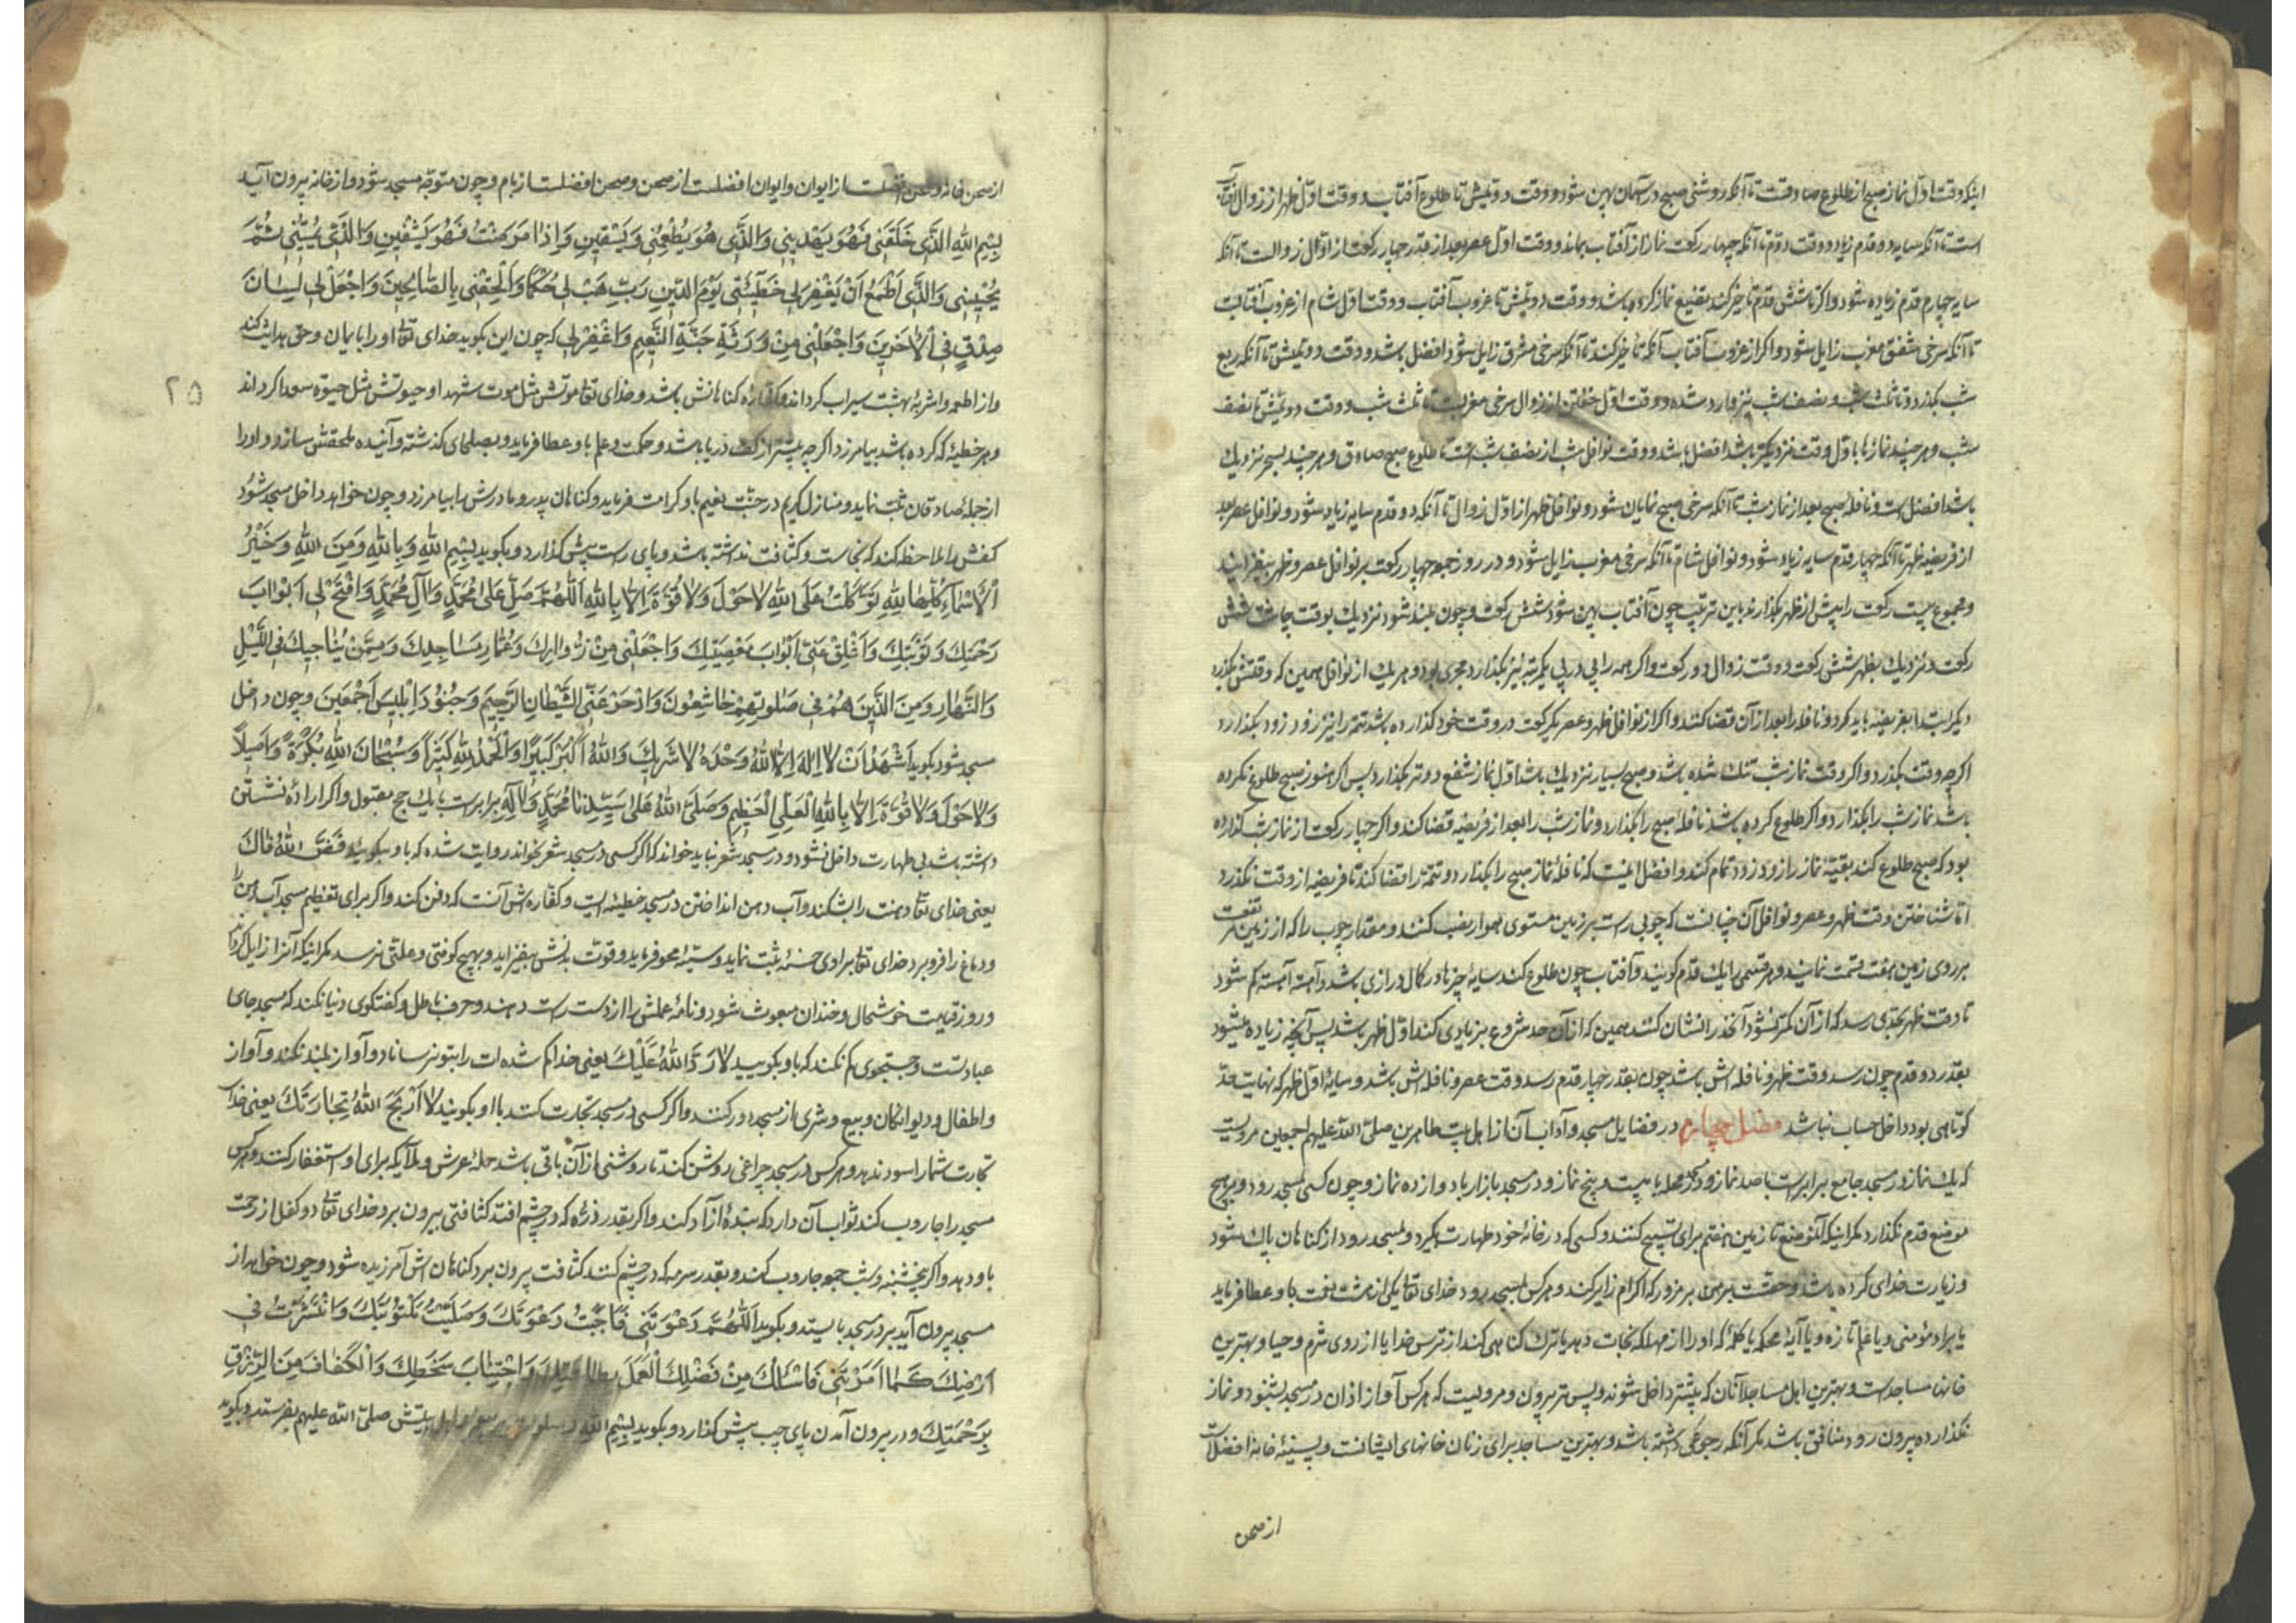 اینکه وقت اول نماز صبح از طلوع صادقت تا آنکه روشنی صبح در آسمان پهن شود و وقت دویمش تا طلوع آفتاب و وقت اول ظهر از زوال آفتاب
است تا آنکه سایه دو قدم زیاد و وقت دوم تا آنکه چهار رکعت نماز از آفتاب بماند و وقت اول عصر بعد از قدر چهار رکعت از اول زوالست تا آنکه
سایه چهارم قدم زیاده شود و اکر تا شش قدم تاخیر کند تضییع نماز کرده باشد و وقت دویمش تا غروب آفتاب و وقت اول شام از غروب آفتابست
تا آنکه سرخی شفق مغرب زایل شود و اکر از غروب آفتاب آنکه تاخیر کند تا آنکه سرخی مشرق زایل شود افضل باشد و وقت دویمش تا آنکه ربع
شب بکذرد و تا ثلث شب و نصف شب نیز وارد شده و وقت اول خفتن از زوال سرخی مغربست تا ثلث شب و وقت دویمش تا نصف
شب و هر چند نمازها باول وقت نزدیکتر باشد افضل باشد و وقت نوافل شب از نصف شب است تا طلوع صبح صادق و هر چند بصبح نزدیک
باشد افضل است و نافلهٔ صبح بعد از نماز شب تا آنکه سرخی صبح نمایان شود و نوافل ظهر از اول زوال تا آنکه دو قدم سایه زیاد شود و نوافل عصر بعد
از فریضه ظهر تا آنکه چهار قدم سایه زیاد شود و نوافل شام تا آنکه سرخی مغرب زایل شود و در روز جمعه چهار رکعت بر نوافل عصر و ظهر بیفزایند
و مجموع بیست رکعت را پیش از ظهر بکذارند باین ترتیب چون آفتاب پهن شود شش رکعت و چون بلند شود نزدیک بوقت چاشت شش
رکعت و نزدیک بظهر شش رکعت و وقت زوال دو رکعت و اکر همه را پی در پی یکمرتبه نیز بکذارد مجزی بود و هر یک از نوافل همین که وقتش بکذرد
دیکر ابتدا بفریضه باید کرد و نافله را بعد از آن قضا کنند و اکر از نوافل ظهر و عصر یکرکعت در وقت خود کذارده باشد تتمه را نیز زود زود بکذارد
اکرچه وقت بکذرد و اکر وقت نماز شب تنک شده باشد و صبح بسیار نزدیک باشد اول نماز شفع و وتر بکذارد پس اکر هنوز صبح طلوع نکرده
باشد نماز شب را بکذارد و اکر طلوع کرده باشد نافلهٔ صبح را بکذارد و نماز شب را بعد از فریضه قضا کند و اکر چهار رکعت از نماز شب کذارده
بود که صبح طلوع کند بقیه نماز را زود زود تمام کند و افضل اینست که نافلهٔ نماز صبح را بکذارد و تتمه را قضا کند تا فریضه از وقت نکذرد
اما شناختن وقت ظهر و عصر و نوافل آن چنانست که چوبی راست بر زمین مستوی هموار نصب کنند و مقدار چوب را که از زمین مرتفعست
بر روی زمین بهفت قسمت نمایند و هر قسمی را یک قدم کویند و آفتاب چون طلوع کند سایهٔ چیزها در کمال درازی باشد و آهسته آهسته کم شود
تا وقت ظهر بحدی رسد که از آن کمتر نشود آنحد را نشان کنند همین که از آن حد شروع بزیادی کند اول ظهر باشد پس آنچه زیاده میشود
بقدر دو قدم چون رسد وقت ظهر و نافله اش باشد چون بقدر چهار قدم رسد وقت عصر و نافله اش باشد و سایهٔ اول ظهر که نهایت حد
کوتاهی بود داخل حساب نباشد فصل چهارم در فضایل مسجد و آداب آن از اهل بیت طاهرین صلی الله علیهم اجمعین مرویست
که یک نماز در مسجد جامع برابرست با صد نماز و در مسجد محله با بیست و پنج نماز و در مسجد بازار با دوازده نماز و چون کسی بمسجد رود و بر هیچ
موضع قدم نکذارد مکر اینکه آنموضع تا زمین هفتم برای تسبیح کنند و کسی که در خانهٔ خود طهارت بکیرد و بمسجد رود از کناهان پاک شود
و زیارت خدای کرده باشد و حقست بر من بر مزور که اکرام زایر کند و هر کس بمسجد رود خدای تعالی یکی از هشت نعمت باو عطا فرماید
یا برادر مؤمنی و یا علم تازه و یا آیهٔ محکمه یا کلمهٔ که او را از مهلکه نجات دهد یا ترک کناهی کند از ترس خدا یا از روی شرم و حیا و بهترین
خانها مساجد است و بهترین اهل مساجد آنان که پیشتر داخل شوند و پس تر بیرون و مرویست که هر کس آواز اذان در مسجد بشنود و نماز
نکذارده بیرون رود منافق باشد مکر آنکه رجوعی داشته باشد و بهترین مساجد برای زنان خانهای ایشانست و پسینهٔ خانه افضلست
از صحن
از صحن خانه و صحن افضلست از ایوان و ایوان افضلست از صحن و صحن افضلست از بام و چون متوجه مسجد شود و از خانه بیرون آید
بِسْمِ اللهِ الَّذی خَلَقَنی فَهُوَ یَهْدینِ وَالَّذی هُوَ یُطْعِمُنی وَیَسْقینِ وَاِذا مَرِضْتُ فَهُوَ یَشْفینِ وَالَّذی یُمیتُنی ثُمَّ
یُحْیینِی وَالَّذی اَطْمَعُ اَنْ یَغْفِرَ لی خَطیئَتی یَوْمَ الدّینِ رَبِّ هَبْ لی حُکْمًا وَاَلْحِقْنی بِالصّالِحینَ وَاجْعَلْ لی لِسانَ
صِدْقٍ فِی الْآخِرینَ وَاجْعَلْنی مِنْ وَرَثَةِ جَنَّةِ النَّعیمِ وَاغْفِرْ لی که چون این بکوید خدای تعالی او را بایمان و حق هدایت کند
و از اطعمه و اشربهٔ بهشت سیراب کرداند و کفاره کناهانش باشد و خدای تعالی موتش مثل موت شهدا و حیوتش مثل حیوة سعدا کرداند
و هر خطیئه که کرده باشد بیامرزد اکرچه بیشتر از کف دریا باشد و حکمت و علم باو عطا فرماید و بصلحای کذشته و آینده ملحقش سازد و او را
از جملهٔ صادقان ثبت نماید و منازل کریم در جنّت نعیم باو کرامت فرماید و کناهان پدر و مادرش را بیامرزد و چون خواهد داخل مسجد شود
کفش را ملاحظه کند که نجاست و کثافت نداشته باشد و پای راست پیش کذارد و بکوید بِسْمِ اللهِ وَبِاللهِ وَمِنَ اللهِ وَخَیْرُ
الْاَسْماءِ کُلِّها لِلّهِ تَوَکَّلْتُ عَلَی اللهِ لا حَوْلَ وَلا قُوَّةَ اِلّا بِاللهِ اَللّهُمَّ صَلِّ عَلی مُحَمَّدٍ وَآلِ مُحَمَّدٍ وَافْتَحْ لی اَبْوابَ
رَحْمَتِکَ وَتَوْبَتِکَ وَاَغْلِقْ عَنّی اَبْوابَ مَعْصِیَتِکَ وَاجْعَلْنی مِنْ زُوّارِکَ وَعُمّارِ مَساجِدِکَ وَمِمَّنْ یُناجیکَ فِی اللَّیْلِ
وَالنَّهارِ وَمِنَ الَّذینَ هُمْ فی صَلوتِهِمْ خاشِعُونَ وَادْحَرْ عَنِّی الشَّیْطانَ الرَّجیمَ وَجُنُودَ اِبْلیسَ اَجْمَعینَ و چون داخل
مسجد شود بکوید اَشْهَدُ اَنْ لا اِلهَ اِلَّا اللهُ وَحْدَهُ لا شَریکَ وَاللهُ اَکْبَرُ کَبیرًا وَالْحَمْدُ لِلّهِ کَثیرًا وَسُبْحانَ اللهِ بُکْرَةً وَاَصیلًا
وَلا حَوْلَ وَلا قُوَّةَ اِلّا بِاللهِ الْعَلِیِّ الْعَظیمِ وَصَلَّی اللهُ عَلی سَیِّدِنا مُحَمَّدٍ وَآلِهِ برابرست با یک حج مقبول و اکر ارادهٔ نشستن
داشته باشد بی طهارت داخل نشود و در مسجد شعر نباید خواند که اکر کسی در مسجد شعر خواند روایت شده که باو بکویید فَضَّ اللهُ فاکَ
یعنی خدای تعالی دهنت را بشکند و آب دهن انداختن در مسجد خطیئه ایست و کفاره اش آنست که دفن کند و اکر برای تعظیم مسجد آب دهن را
و دماغ را فرو برد خدای تعالی برای او حسنهٔ ثبت نماید و سیئهٔ محو فرماید و قوت بدنش بیفزاید و بهیچ کوفتی و علتی نرسد مکر اینکه آنرا زایل کرداند
و روز قیامت خوشحال و خندان مبعوث شود و نامهٔ عملش را از دست راست دهند و حرف باطل و کفتکوی دنیا نکند که مسجد جای
عبادتست و جستجوی کم نکند که باو بکویید لا رَدَّ اللهُ عَلَیْکَ یعنی خدا کم شده ات را بتو نرساناد و آواز بلند نکند و آواز
و اطفال و دیوانکان و بیع و شری از مسجد دور کنند و اکر کسی در مسجد تجارت کند باو بکویند لا اَرْبَحَ اللهُ تِجارَتَکَ یعنی خدا
تجارت شما را سود ندهد و هر کس در مسجد چراغی روشن کند تا روشنی از آن باقی باشد حملهٔ عرش و ملایکه برای او استغفار کنند و هر کس
مسجد را جاروب کند ثواب آن دارد که بندهٔ آزاد کند و اکر بقدر ذرهٔ که در چشم افتد کثافتی بیرون برد خدای تعالی دو کفل از رحمت
باو دهد و اکر پنجشنبه و شب جمعه جاروب کند و بقدر سرمه که در چشم کنند کثافت بیرون برد کناهان اش آمرزیده شود و چون خواهد از
مسجد بیرون آید بر در مسجد بایستد و بکوید اَللّهُمَّ دَعَوْتَنی فَاَجَبْتُ دَعْوَتَکَ وَصَلَّیْتُ مَکْتُوبَتَکَ وَانْتَشَرْتُ فی
اَرْضِکَ کَما اَمَرْتَنی فَاَسْئَلُکَ مِنْ فَضْلِکَ الْعَمَلَ بِطاعَتِکَ وَاجْتِنابَ سَخَطِکَ وَالْکَفافَ مِنَ الرِّزْقِ
بِرَحْمَتِکَ و در بیرون آمدن پای چپ پیش کذارد و بکوید بِسْمِ اللهِ و صلوات بر پیغمبر و اهل بیتش صلی الله علیهم بفرستد و بکوید
۲۵